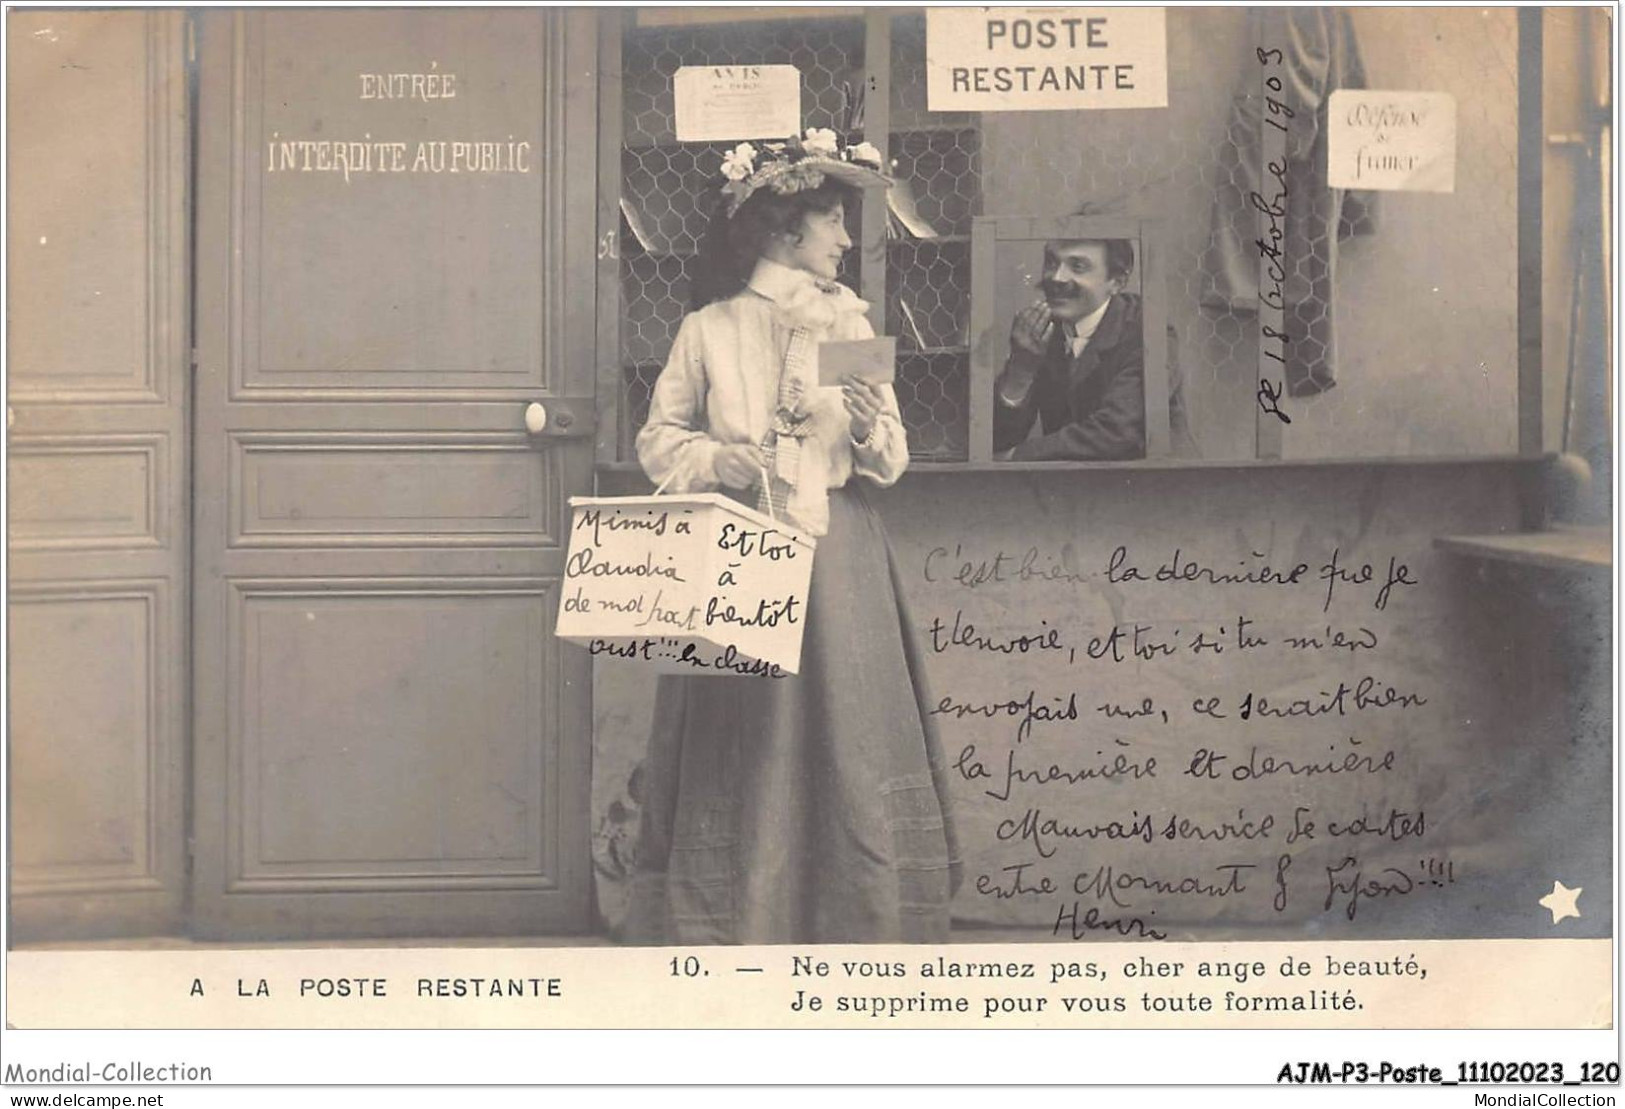 ENTRÉE
INTERDITE AU PUBLIC
AVIS
POSTE
RESTANTE
Défense
de
fumer
Le 18 Octobre 1903
Mimis à
Claudia
de moi part
Et toi
à
bientôt
oust!!! en classe
C'est bien la dernière que je
t'envoie, et toi si tu m'en
envoyais une, ce serait bien
la première et dernière
Mauvais service de cartes
entre Mornant & Lyon!!!!
Henri
A LA POSTE RESTANTE
10. — Ne vous alarmez pas, cher ange de beauté,
Je supprime pour vous toute formalité.
Mondial-Collection
AJM-P3-Poste_11102023_120
delcampe.net
MondialCollection